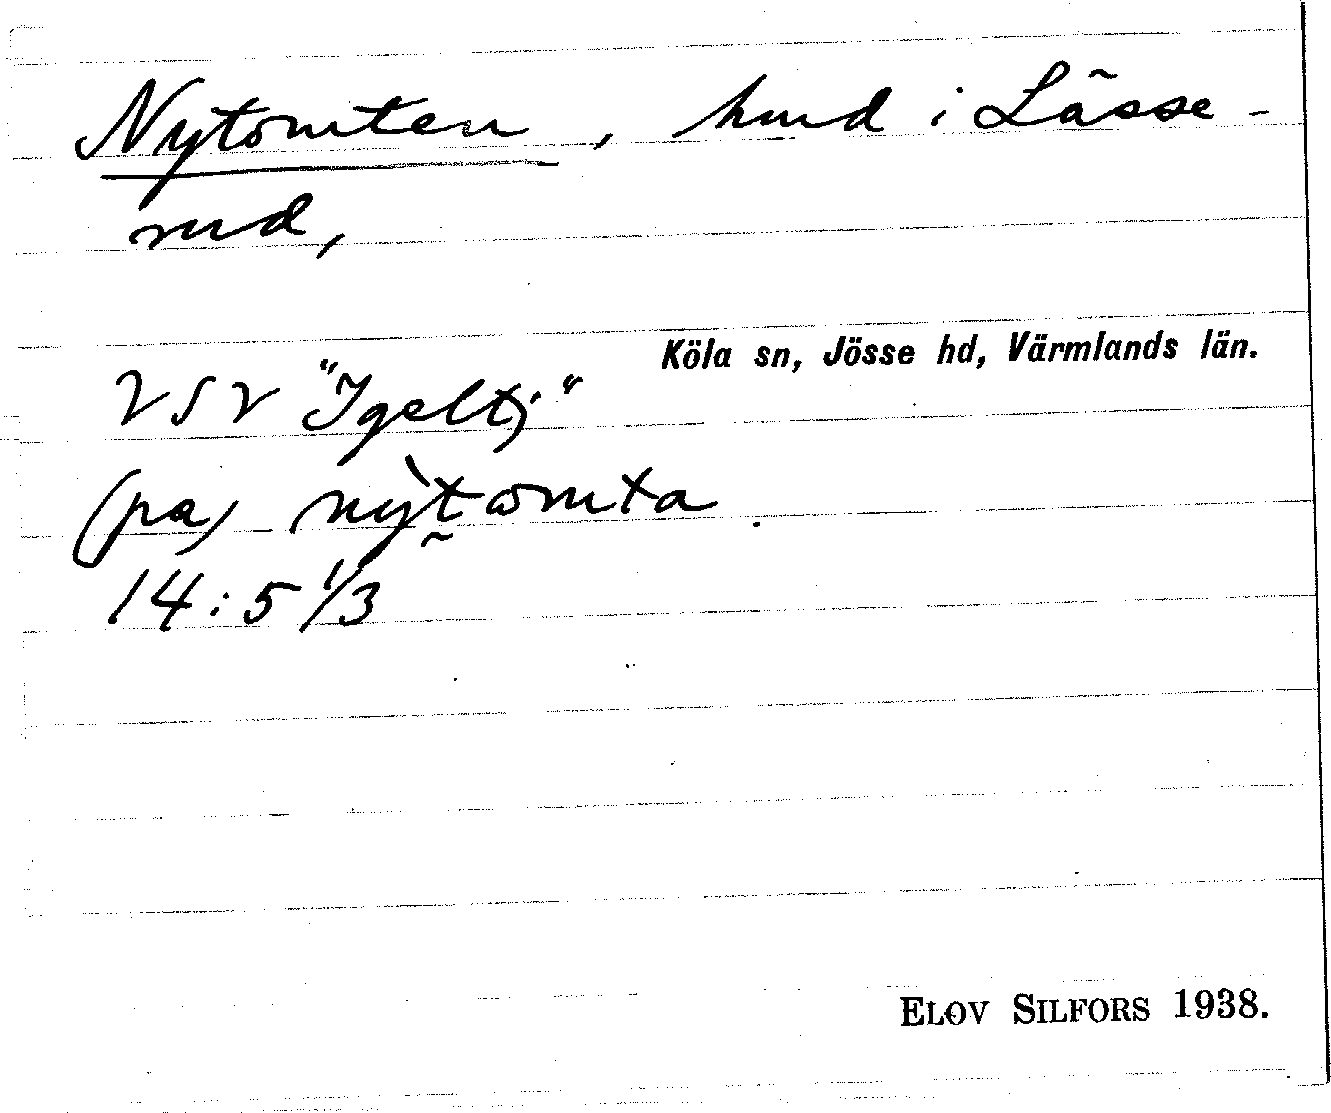 Nytomten, hmd i Lässe-
rud,
Köla sn, Jösse hd, Värmlands län.
VSV "Igeltj"
(pa) nỳtωmta.
14:5 1/3
ELOV SILFORS 1938.